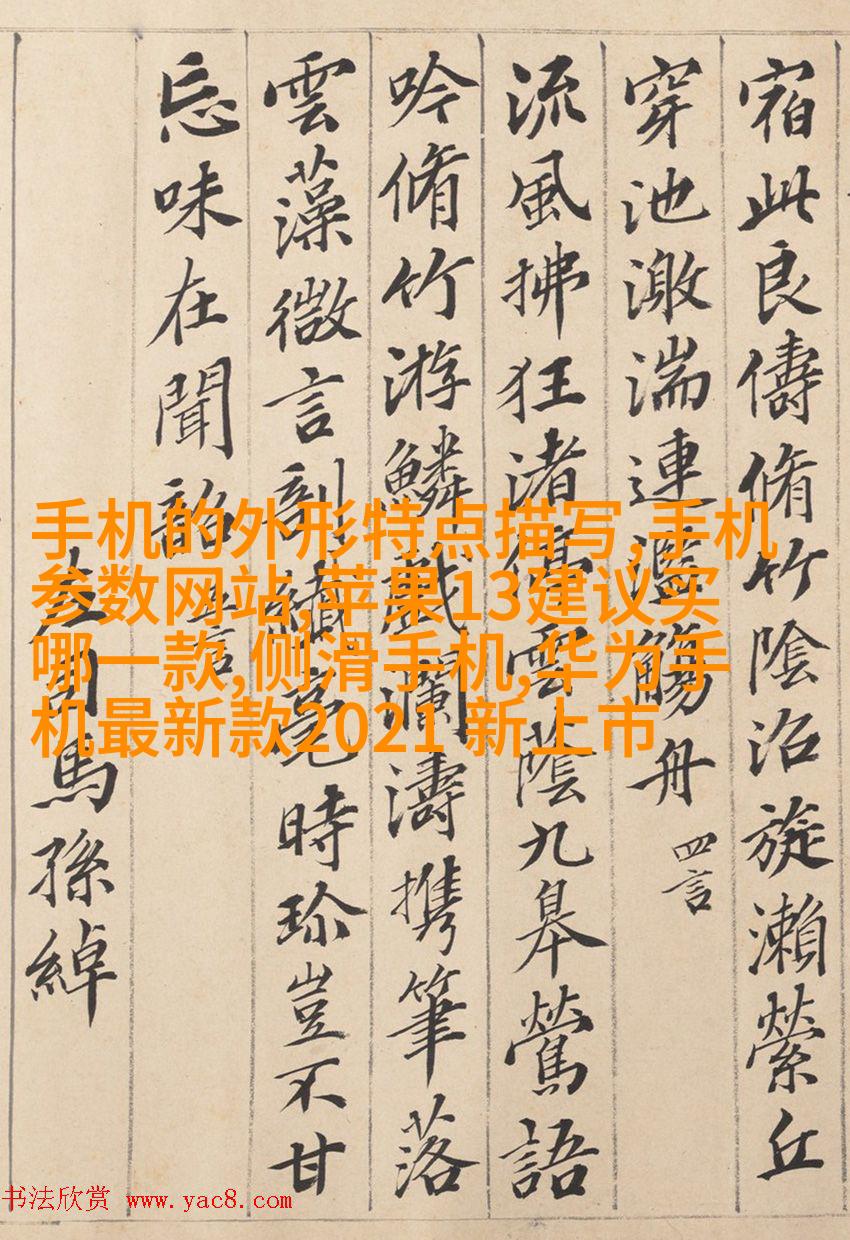 宿此良儔脩竹陰沼旋瀨縈丘
穿池激湍連濫觴舟 四言
流風拂狂渚停雲蔭九皋鶯語
吟脩竹游鱗戲瀾濤携筆落
雲藻微言剖纖毫時珍豈不甘
忘味在聞韶 五言
左司馬孫綽
手机的外形特点描写,手机
参数网站,苹果13建议买
哪一款,侧滑手机,华为手
机最新款2021 新上市
书法欣赏 www.yac8.com